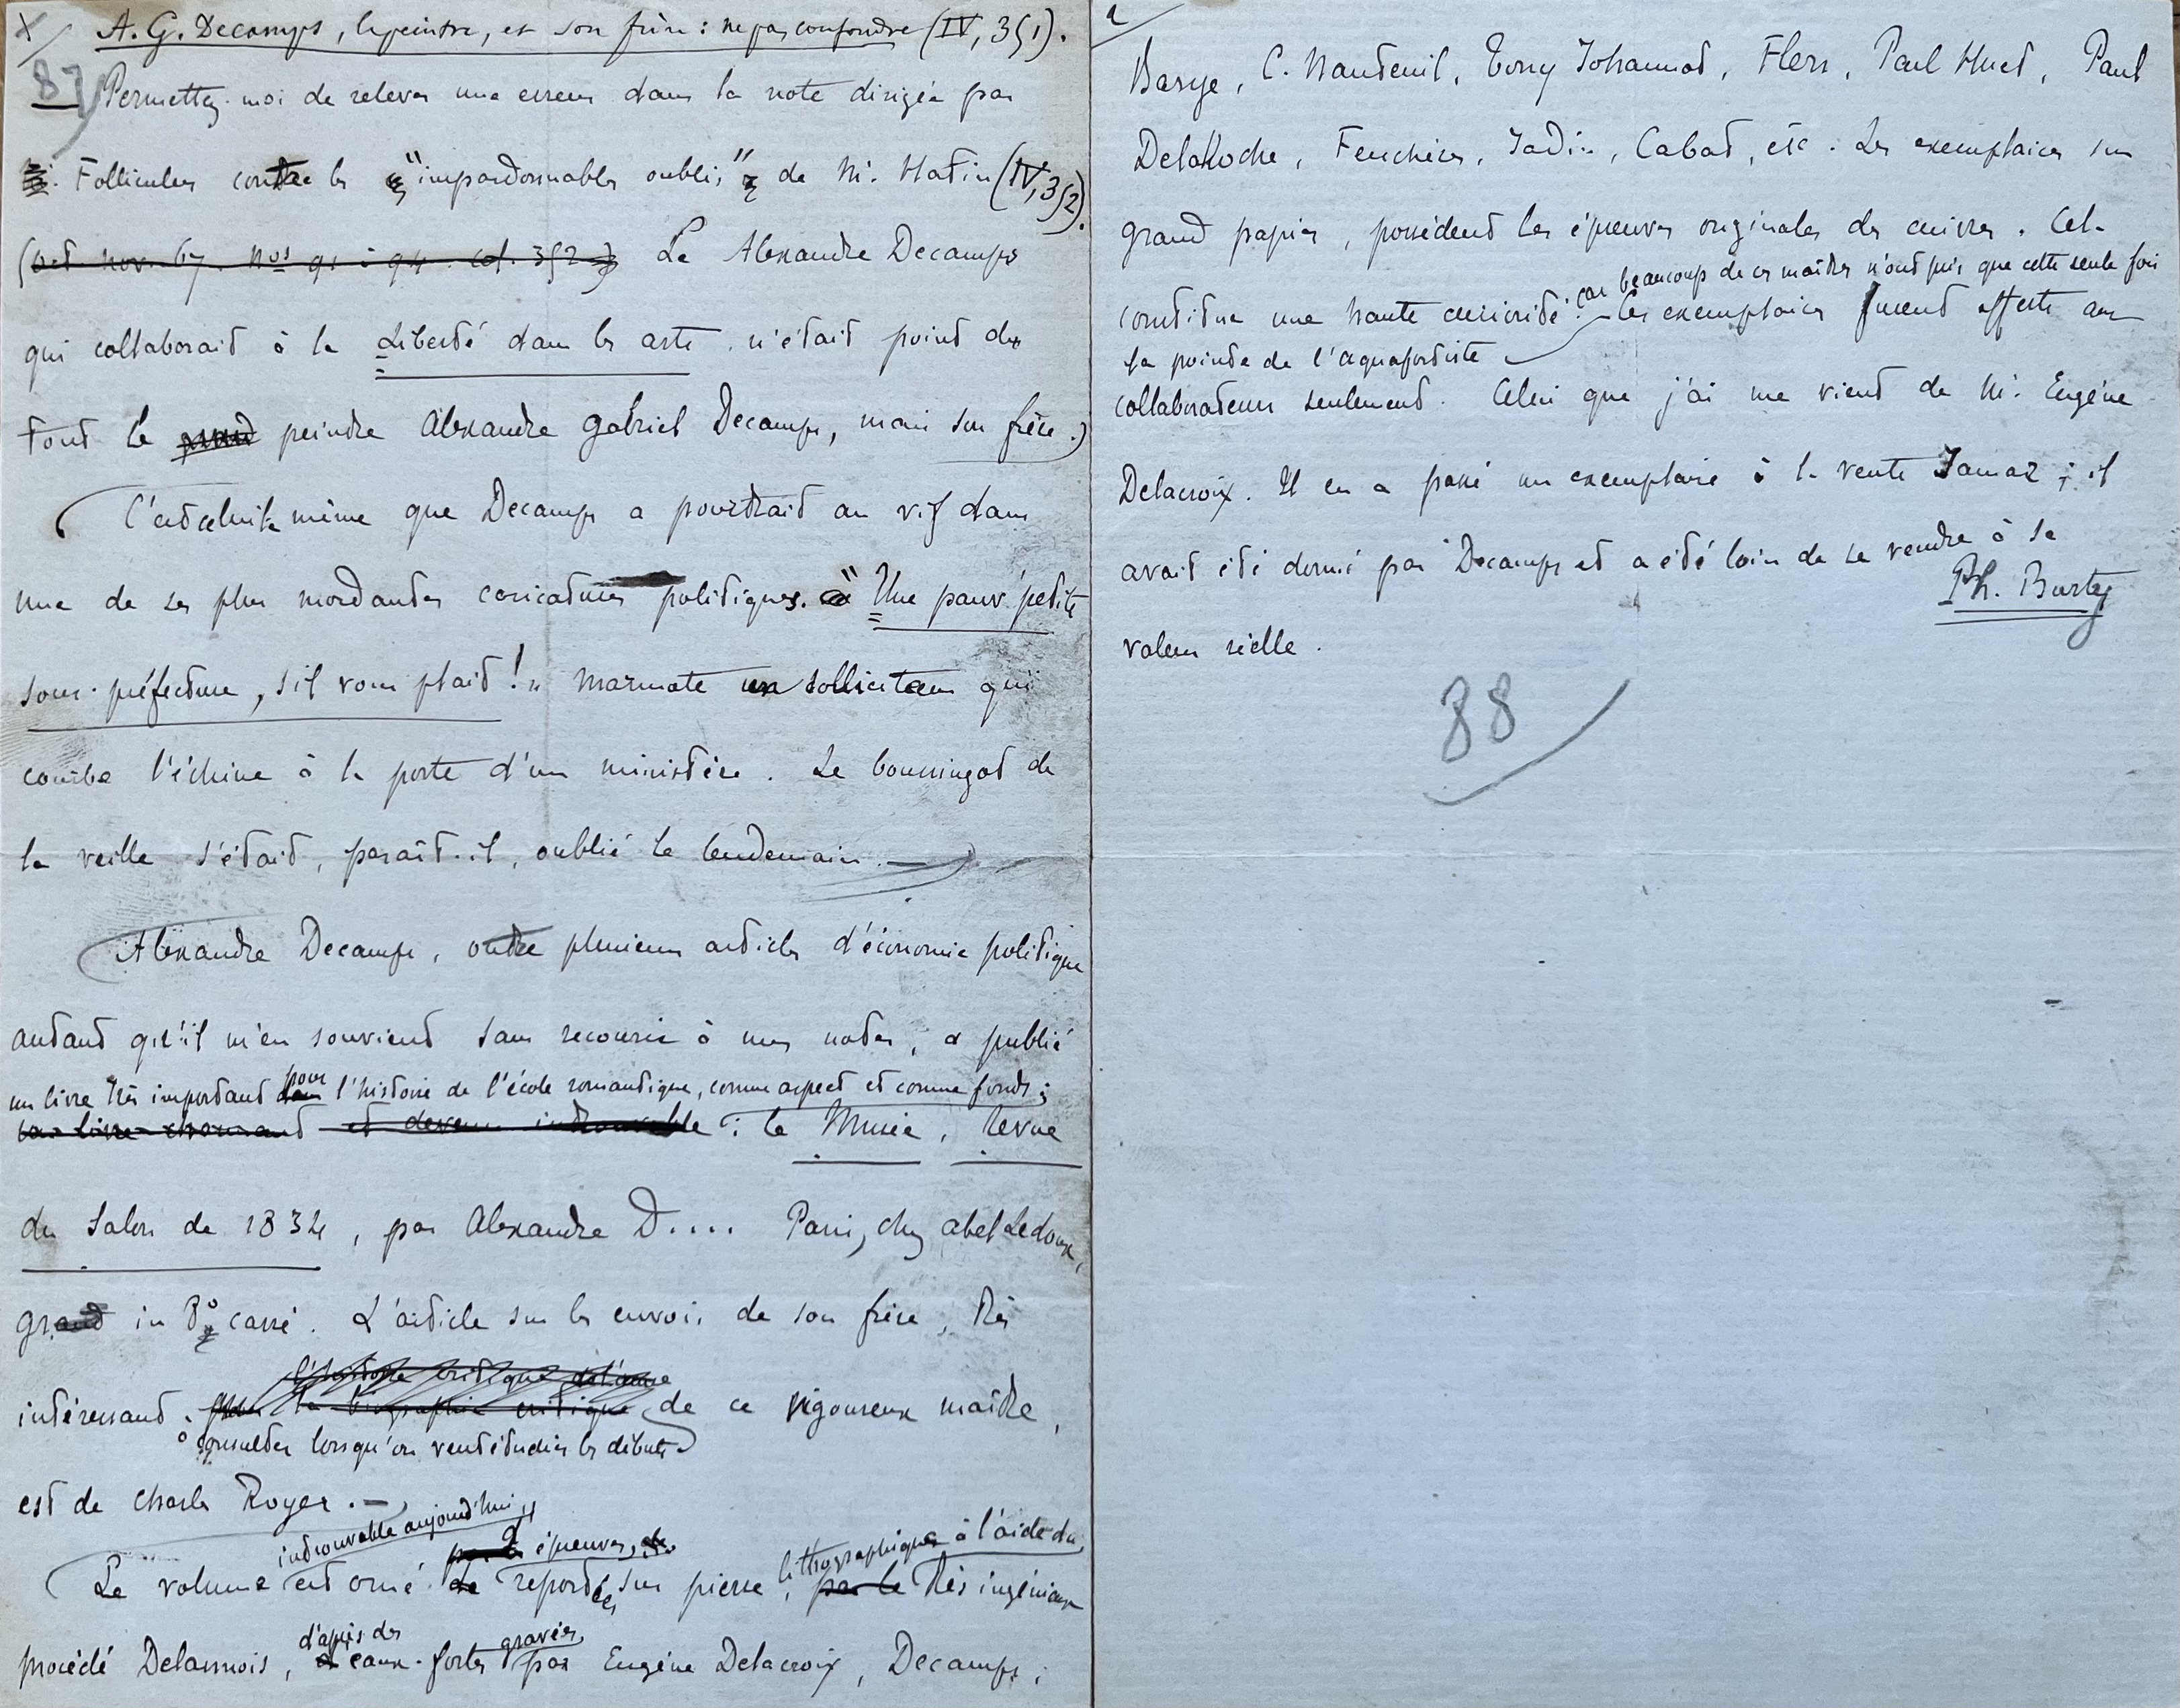 A. G. Decamps, le peintre, et son frère : ne pas confondre (IV, 351).
87
Permettez-moi de relever une erreur dans la note dirigée par
Folliculus contre les "impardonnables oublis" de M. Hatin (IV, 352).
(oct. nov. 67. nos 91 à 94. col. 352) Le Alexandre Decamps
qui collaborait à la Liberté dans les arts n'était point du
tout le grand peindre Alexandre Gabriel Decamps, mais son frère.)
C'est celui-là même que Decamps a pourtrait au vif dans
une de ses plus mordantes caricatures politiques. "Une pauv' petite
sous-préfecture, s'il vous plait !" marmote un solliciteur qui
courbe l'échine à la porte d'un ministère. Le bousingot de
la veille s'était, paraît-il, oublié le lendemain. —
Alexandre Decamps, outre plusieurs articles d'économie politique
autant qu'il m'en souvient sans recourir à mes notes, a publié
un livre très important dans pour l'histoire de l'école romantique, comme aspect et comme fonds ;
un livre charmant et devenu introuvable : le Musée, revue
du Salon de 1834, par Alexandre D.... Paris, chez Abel Ledoux,
grand in 8º carré. L'article sur les envois de son frère, très
l'histoire critique de l'œuvre
intéressant pour la biographie critique de ce vigoureux maître,
à consulter lorsqu'on veut étudier les débuts
est de Charles Royer. —
introuvable aujourd'hui,
d'épreuves, de lithographiques à l'aide du
Le volume est orné de reportées sur pierre, par le très ingénieux
d'après des gravées
procédé Delaunois, d'eaux-fortes par Eugène Delacroix, Decamps,
2
Barye, C. Nanteuil, Tony Johannot, Flers, Paul Huet, Paul
DelaRoche, Feuchère, Jadin, Cabat, etc. Les exemplaires sur
grand papier, possèdent les épreuves originales des cuivres. Cela
car beaucoup de ces maîtres n'ont pris que cette seule fois
constitue une haute curiosité. Ces exemplaires furent offerts aux
la pointe de l'aquafortiste
collaborateurs seulement. Celui que j'ai me vient de M. Eugène
Delacroix. Il en a passé un exemplaire à la vente Jamar ; il
avait été donné par Decamps et a été loin de se vendre à sa
Ph. Burty
valeur réelle.
88